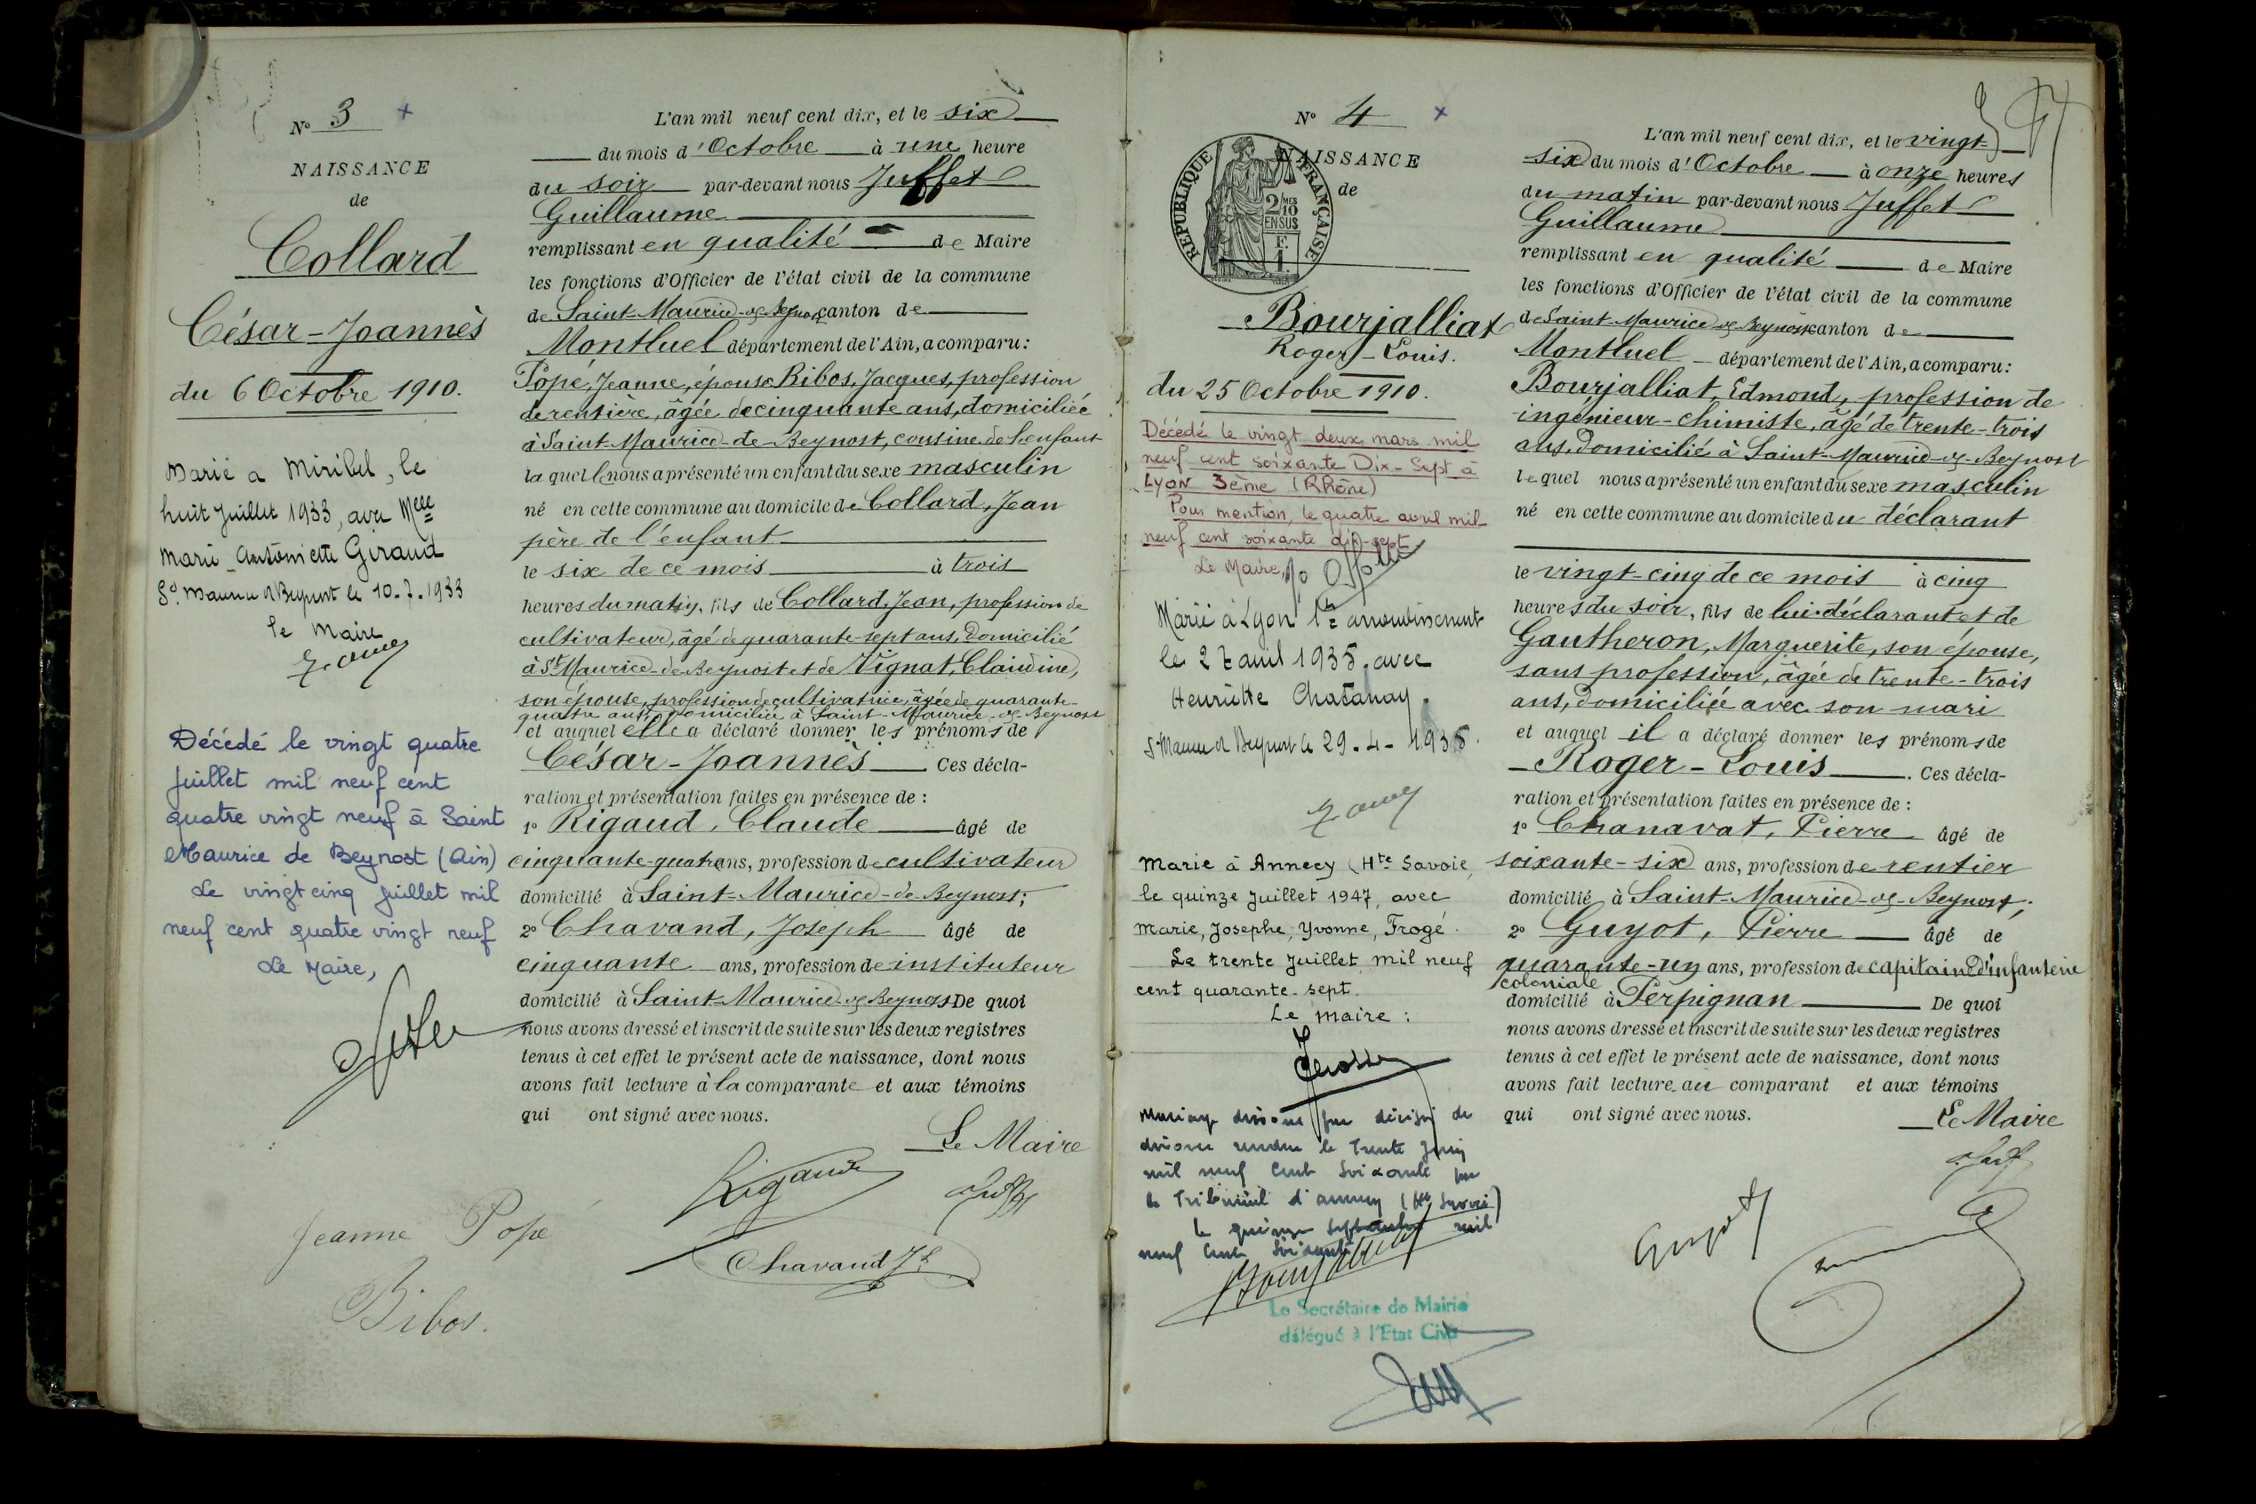 N° 3 +
NAISSANCE
de
Collard
César-Joannès
du 6 Octobre 1910.
Marié a Miribel, le
huit Juillet 1933, avec Melle
Marie Antoinette Giraud
St. Maurice d Beynost le 10.7.1933
le Maire
Décédé le vingt quatre
juillet mil neuf cent
quatre vingt neuf à Saint
Maurice de Beynost (Ain)
Le vingt cinq juillet mil
neuf cent quatre vingt neuf
Le Maire,
L'an mil neuf cent dix, et le six
du mois d'Octobre à une heure
du soir par-devant nous Juffet
Guillaume
remplissant en qualité de Maire
les fonctions d'Officier de l'état civil de la commune
de Saint-Maurice-de-Beynost canton de
Montluel département de l'Ain, a comparu:
Popé, Jeanne, épouse Bibos, Jacques, profession
de rentière, âgée de cinquante ans, domiciliée
à Saint-Maurice-de-Beynost, cousine de l'enfant
laquelle nous a présenté un enfant du sexe masculin
né en cette commune au domicile de Collard, Jean
père de l'enfant
le six de ce mois à trois
heures du matin, fils de Collard, Jean, profession de
cultivateur, âgé de quarante-sept ans, domicilié
à St Maurice-de-Beynost et de Vignat, Claudine,
son épouse, profession de cultivatrice, âgée de quarante-
quatre ans, domiciliée à Saint-Maurice-de-Beynost
et auquel elle a déclaré donner les prénoms de
César-Joannès Ces décla-
ration et présentation faites en présence de :
1° Rigaud, Claude âgé de
cinquante-quatre ans, profession de cultivateur
domicilié à Saint-Maurice-de-Beynost;
2° Chavand, Joseph âgé de
cinquante ans, profession de instituteur
domicilié à Saint-Maurice-de-Beynost De quoi
nous avons dressé et inscrit de suite sur les deux registres
tenus à cet effet le présent acte de naissance, dont nous
avons fait lecture à la comparante et aux témoins
qui ont signé avec nous.
Le Maire
Rigaud
Jeanne Popé
Chavand Jh
Bibos.
N° 4 +
NAISSANCE
de
REPUBLIQUE FRANÇAISE
2 MES
10
EN SUS
F.
1.
Bourjalliat
Roger-Louis.
du 25 Octobre 1910.
Décédé le vingt deux mars mil
neuf cent soixante Dix-Sept à
LYON 3ème (Rhône)
Pour mention, le quatre avril mil
neuf cent soixante dix-sept
Le Maire,
Marié à Lyon 1er arrondissement
le 27 avril 1935 avec
Henriette Chatanay.
St Maurice d Beynost le 29-4-1935
Marié à Annecy (Hte Savoie)
le quinze Juillet 1947, avec
Marie, Josephe, Yvonne, Frogé.
Le trente Juillet mil neuf
cent quarante-sept.
Le Maire :
Mariage dissous par décision de
divorce rendue le trente Juin
mil neuf cent soixante par
le Tribunal d'Annecy (Hte Savoie)
le quinze septembre mil
neuf cent soixante
Le Secrétaire de Mairie
délégué à l'Etat Civil
L'an mil neuf cent dix, et le vingt-
six du mois d'Octobre à onze heures
du matin par-devant nous Juffet
Guillaume
remplissant en qualité de Maire
les fonctions d'Officier de l'état civil de la commune
de Saint-Maurice-de-Beynost canton de
Montluel département de l'Ain, a comparu:
Bourjalliat, Edmond, profession de
ingénieur-chimiste, âgé de trente-trois
ans, domicilié à Saint-Maurice-de-Beynost
lequel nous a présenté un enfant du sexe masculin
né en cette commune au domicile du déclarant
le vingt-cinq de ce mois à cinq
heures du soir, fils de lui déclarant et de
Gautheron, Marguerite, son épouse,
sans profession, âgée de trente-trois
ans, domiciliée avec son mari
et auquel il a déclaré donner les prénoms de
Roger-Louis. Ces décla-
ration et présentation faites en présence de :
1° Chanavat, Pierre âgé de
soixante-six ans, profession de rentier
domicilié à Saint-Maurice-de-Beynost;
2° Guyot, Pierre âgé de
quarante-un ans, profession de capitaine d'infanterie
coloniale
domicilié à Perpignan De quoi
nous avons dressé et inscrit de suite sur les deux registres
tenus à cet effet le présent acte de naissance, dont nous
avons fait lecture au comparant et aux témoins
qui ont signé avec nous.
Le Maire
Guyot